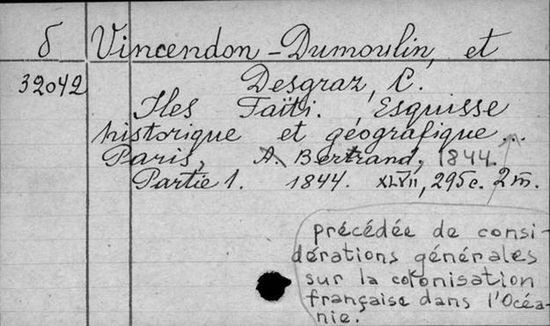 δ Vincendon-Dumoulin, et
32042 Desgraz, C.
Iles Taïti. Esquisse
historique et géografique...
Paris, A. Bertrand, 1844.
Partie 1. 1844. XLVII, 295c. 2 m.
précédée de consi-
dérations générales
sur la colonisation
française dans l'Océa-
nie.